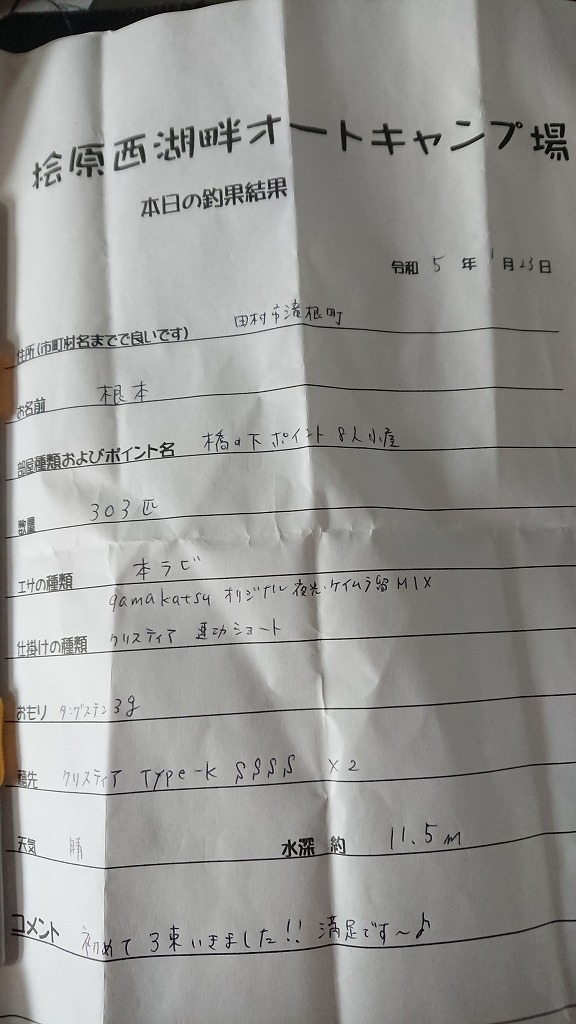 桧原西湖畔オートキャンプ場
本日の釣果結果
令和 5 年 1 月 23 日
住所(市町村名までで良いです) 田村市滝根町
お名前 根本
部屋種類およびポイント名 橋の下ポイント 8人小屋
数量 303匹
エサの種類 本ラビ
gamakatsu オリジナル 夜光・ケイムラ留MIX
仕掛けの種類 クリスティア 速功ショート
おもり タングステン 3g
穂先 クリスティア Type-K SSSS ×2
天気 晴 水深 約 11.5m
コメント 初めて3束いきました!! 満足です~♪